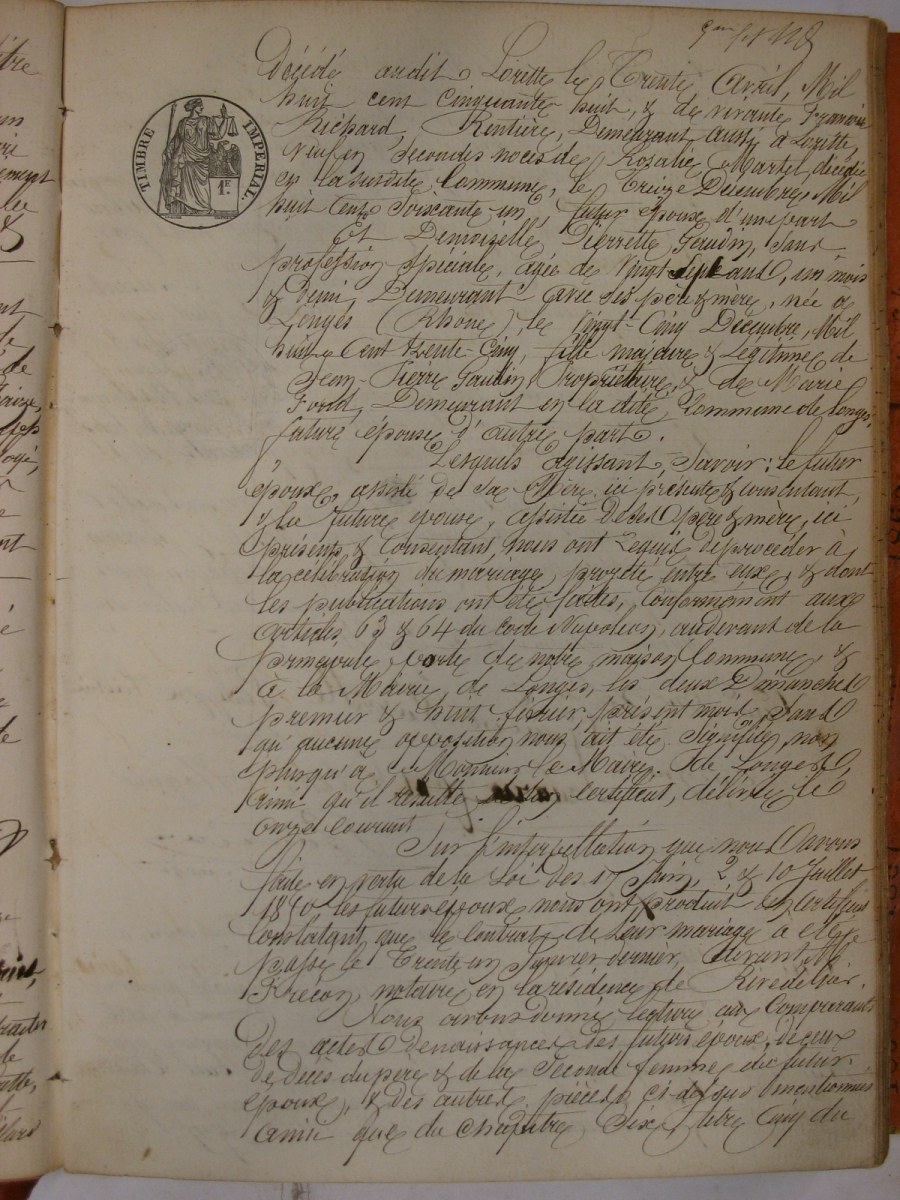 TIMBRE IMPERIAL
1F.
décédé audit Lorette le Trente Avril, Mil
huit cent cinquante huit, & de vivante Francoise
Richard, Rentière, Demeurant aussi à Lorette,
Veuf en secondes noces de Rosalie Martel, décédée
en la susdite Commune, le Treize Décembre, Mil
huit Cent Soixante un, futur époux d'une part
Et Demoiselle Pierrette Gaudin, sans
profession spéciale, agée de Vingt Sept ans, un mois
& demi, Demeurant avec ses père & mère, née à
Longes (Rhône) le Vingt-Cinq Décembre, Mil
huit Cent trente-Cinq, fille majeure & Légitime de
Jean-Pierre Gaudin, Propriétaire, & de Marie
Demeurant en la dite Commune de Longes,
future épouse d'autre part.
Lesquels agissant, Savoir: le futur
époux, assisté de sa Mère, ici présente & consentant,
& la future épouse, assistée de ses père & mère, ici
présents & Consentant, nous ont requis de procéder à
la célébration du mariage projeté entre eux, & dont
les publications ont été faites, Conformément aux
articles 63 & 64 du Code Napoléon, audevant de la
principale porte de notre maison Commune, &
à la Mairie de Longes, les deux Dimanches
premier & huit février, présent mois, sans
qu'aucune opposition nous ait été signifiée, non
plus qu'à Monsieur le Maire de Longes,
ainsi qu'il résulte certificat, délivré le
onze courant
Sur l'interpellation que nous avons
faite en vertu de la Loi des 17 Juin, 2 & 10 Juillet
1850 les futurs époux nous ont produit un certificat
constatant que le contrat de leur mariage a été
passé le Trente un Janvier dernier, devant Me
notaire en la résidence de Rivedegier.
Nous avons donné lecture aux Comparants
des actes de naissance des futurs époux, de ceux
de décès du père & de la Seconde femme du futur
époux, & des autres pièces ci-dessus mentionnées
ainsi que du Chapitre Six, titre Cinq du